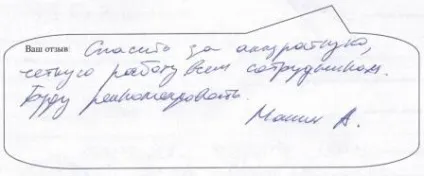 Ваш отзыв: Спасибо за аккуратную,
четкую работу всем сотрудникам.
Буду рекомендовать.
Машин А.